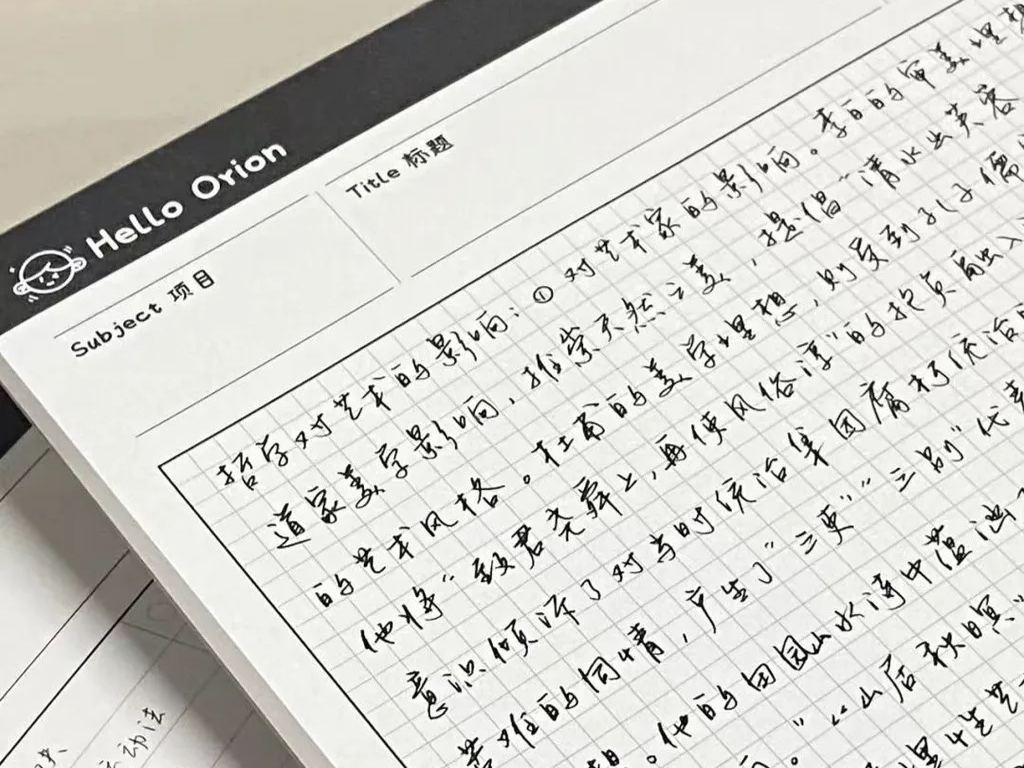 Hello Orion
Subject 项目
Title 标题
哲学对艺术的影响：① 对艺术家的影响。李白的审美理想
道家美学影响，推崇天然之美，提倡“清水出芙蓉
的艺术风格。杜甫的美学理想，则受到孔子儒
他将“致君尧舜上，再使风俗淳”的抱负融入
意识倾诉了对当时统治集团腐朽统治
苦难的同情，产生了“三吏”“三别”代表
。他的田园山水诗中蕴
。”“山居秋暝”
理性艺
动法